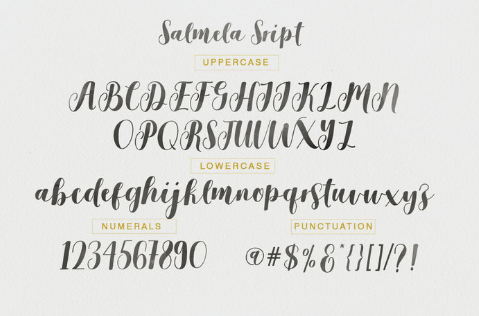 Salmela Sript
UPPERCASE
ABCDEFGHIJKLMN
OPQRSTUVWXYZ
LOWERCASE
abcdefghijklmnopqrstuvwxyz
NUMERALS
PUNCTUATION
1234567890
@#$%&*{}[]/?!